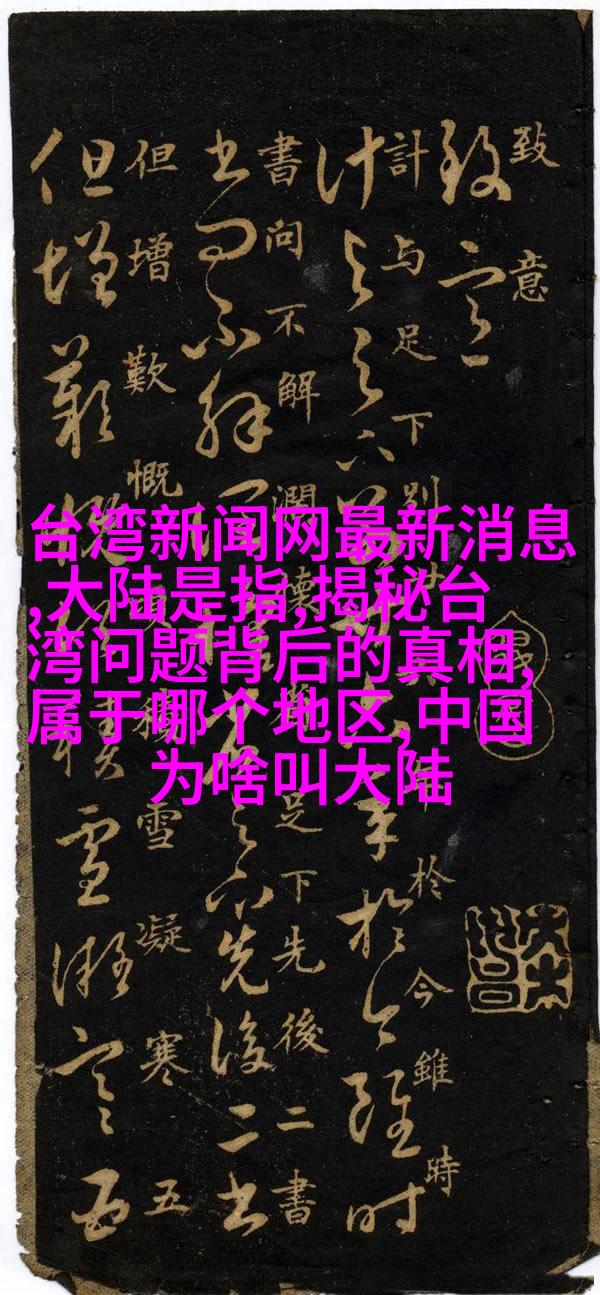 台湾新闻网最新消息
,大陆是指,揭秘台
湾问题背后的真相,
属于哪个地区,中国
为啥叫大陆
致意
計与足下別廿年於今雖時
書問不解闊懷足下先後二書
但增歎慨積雪凝寒五